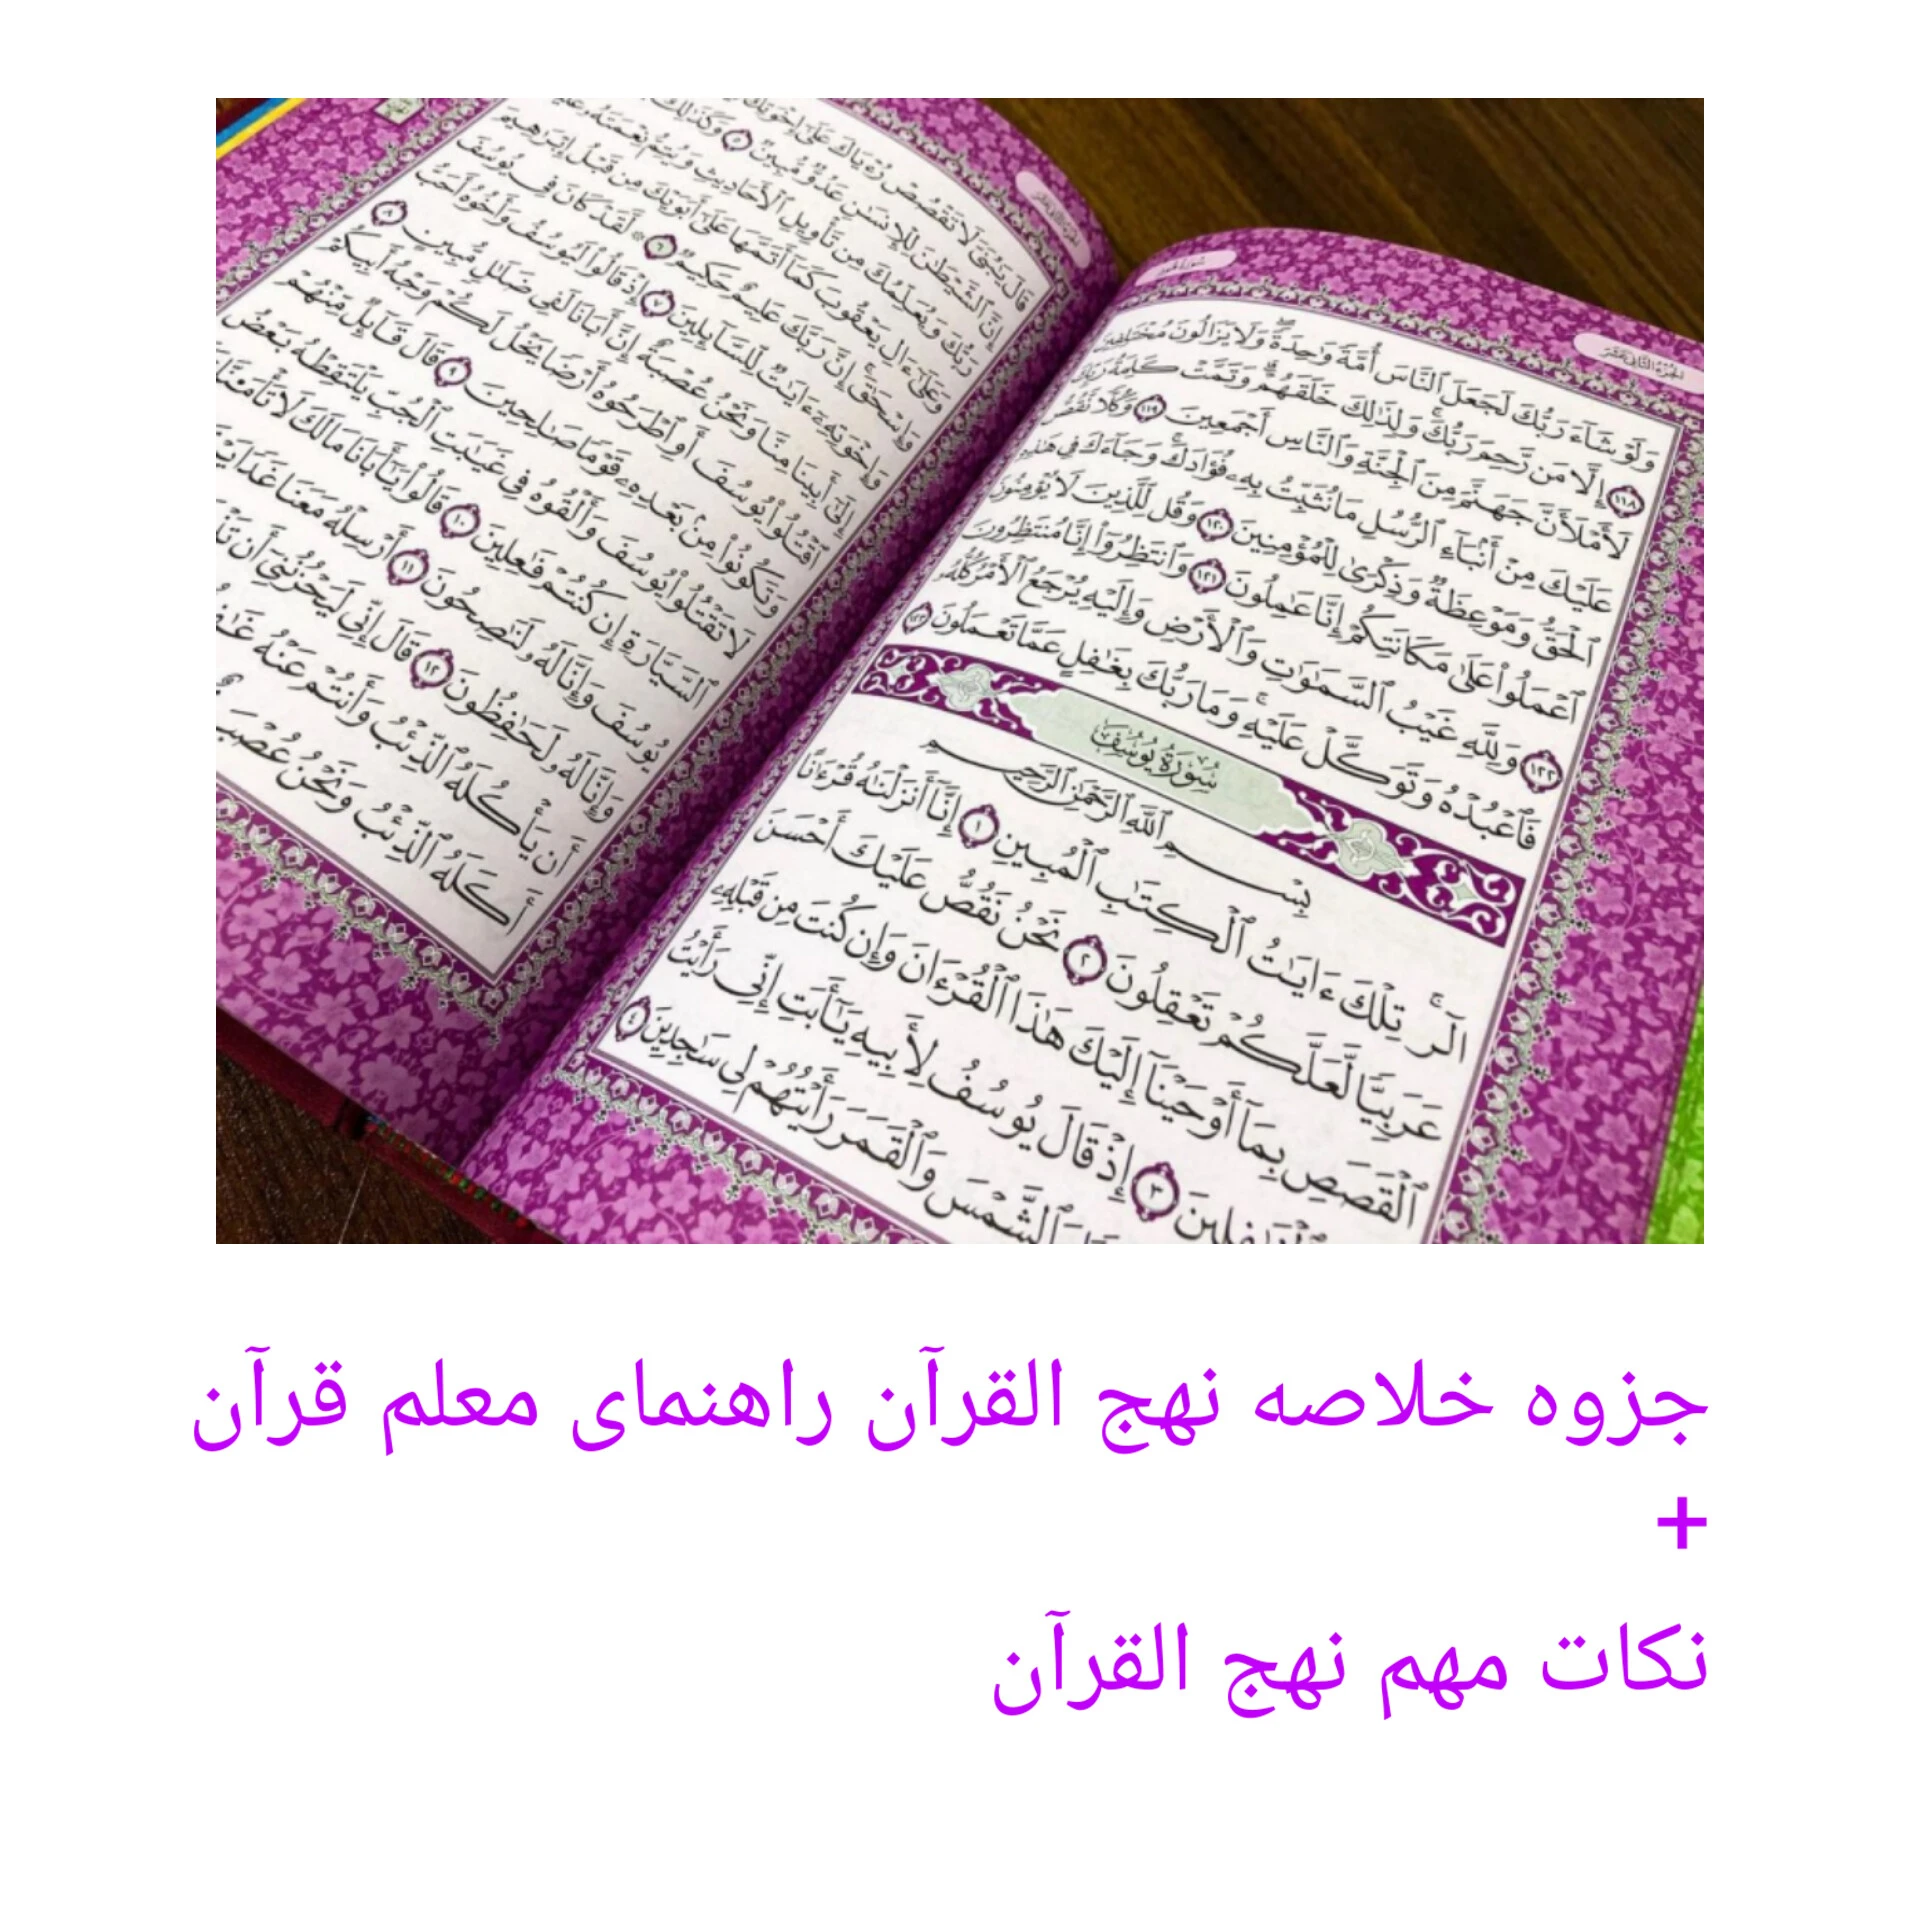 وَلَوْ شَآءَ رَبُّكَ لَجَعَلَ ٱلنَّاسَ أُمَّةً وَٰحِدَةً وَلَا يَزَالُونَ مُخْتَلِفِينَ
١١٨ إِلَّا مَن رَّحِمَ رَبُّكَ وَلِذَٰلِكَ خَلَقَهُمْ وَتَمَّتْ كَلِمَةُ رَبِّكَ
لَأَمْلَأَنَّ جَهَنَّمَ مِنَ ٱلْجِنَّةِ وَٱلنَّاسِ أَجْمَعِينَ ١١٩ وَكُلًّا نَّقُصُّ
عَلَيْكَ مِنْ أَنۢبَآءِ ٱلرُّسُلِ مَا نُثَبِّتُ بِهِۦ فُؤَادَكَ وَجَآءَكَ فِى هَٰذِهِ
ٱلْحَقُّ وَمَوْعِظَةٌ وَذِكْرَىٰ لِلْمُؤْمِنِينَ ١٢٠ وَقُل لِّلَّذِينَ لَا يُؤْمِنُونَ
ٱعْمَلُوا۟ عَلَىٰ مَكَانَتِكُمْ إِنَّا عَٰمِلُونَ ١٢١ وَٱنتَظِرُوٓا۟ إِنَّا مُنتَظِرُونَ
١٢٢ وَلِلَّهِ غَيْبُ ٱلسَّمَٰوَٰتِ وَٱلْأَرْضِ وَإِلَيْهِ يُرْجَعُ ٱلْأَمْرُ كُلُّهُۥ
فَٱعْبُدْهُ وَتَوَكَّلْ عَلَيْهِ وَمَا رَبُّكَ بِغَٰفِلٍ عَمَّا تَعْمَلُونَ ١٢٣
سُورَةُ يُوسُفَ
بِسْمِ ٱللَّهِ ٱلرَّحْمَٰنِ ٱلرَّحِيمِ
الٓر تِلْكَ ءَايَٰتُ ٱلْكِتَٰبِ ٱلْمُبِينِ ١ إِنَّآ أَنزَلْنَٰهُ قُرْءَٰنًا
عَرَبِيًّا لَّعَلَّكُمْ تَعْقِلُونَ ٢ نَحْنُ نَقُصُّ عَلَيْكَ أَحْسَنَ
ٱلْقَصَصِ بِمَآ أَوْحَيْنَآ إِلَيْكَ هَٰذَا ٱلْقُرْءَانَ وَإِن كُنتَ مِن قَبْلِهِۦ
ٱلْغَٰفِلِينَ ٣ إِذْ قَالَ يُوسُفُ لِأَبِيهِ يَٰٓأَبَتِ إِنِّى رَأَيْتُ
وَٱلشَّمْسَ وَٱلْقَمَرَ رَأَيْتُهُمْ لِى سَٰجِدِينَ ٤
قَالَ يَٰبُنَىَّ لَا تَقْصُصْ رُءْيَاكَ عَلَىٰٓ إِخْوَتِكَ
إِنَّ ٱلشَّيْطَٰنَ لِلْإِنسَٰنِ عَدُوٌّ مُّبِينٌ ٥ وَكَذَٰلِكَ
رَبُّكَ وَيُعَلِّمُكَ مِن تَأْوِيلِ ٱلْأَحَادِيثِ وَيُتِمُّ نِعْمَتَهُۥ عَلَيْكَ
وَعَلَىٰٓ ءَالِ يَعْقُوبَ كَمَآ أَتَمَّهَا عَلَىٰٓ أَبَوَيْكَ مِن قَبْلُ إِبْرَٰهِيمَ
وَإِسْحَٰقَ إِنَّ رَبَّكَ عَلِيمٌ حَكِيمٌ ٦ لَّقَدْ كَانَ فِى يُوسُفَ
وَإِخْوَتِهِۦٓ ءَايَٰتٌ لِّلسَّآئِلِينَ ٧ إِذْ قَالُوا۟ لَيُوسُفُ وَأَخُوهُ أَحَبُّ
إِلَىٰٓ أَبِينَا مِنَّا وَنَحْنُ عُصْبَةٌ إِنَّ أَبَانَا لَفِى ضَلَٰلٍ مُّبِينٍ ٨
ٱقْتُلُوا۟ يُوسُفَ أَوِ ٱطْرَحُوهُ أَرْضًا يَخْلُ لَكُمْ وَجْهُ أَبِيكُمْ
وَتَكُونُوا۟ مِنۢ بَعْدِهِۦ قَوْمًا صَٰلِحِينَ ٩ قَالَ قَآئِلٌ مِّنْهُمْ
لَا تَقْتُلُوا۟ يُوسُفَ وَأَلْقُوهُ فِى غَيَٰبَتِ ٱلْجُبِّ يَلْتَقِطْهُ بَعْضُ
ٱلسَّيَّارَةِ إِن كُنتُمْ فَٰعِلِينَ ١٠ قَالُوا۟ يَٰٓأَبَانَا مَا لَكَ لَا تَأْمَ۫نَّا
يُوسُفَ وَإِنَّا لَهُۥ لَنَٰصِحُونَ ١١ أَرْسِلْهُ مَعَنَا غَدًا
وَإِنَّا لَهُۥ لَحَٰفِظُونَ ١٢ قَالَ إِنِّى لَيَحْزُنُنِىٓ أَن
أَن يَأْكُلَهُ ٱلذِّئْبُ وَأَنتُمْ عَنْهُ
أَكَلَهُ ٱلذِّئْبُ وَنَحْنُ عُصْبَةٌ
جزوه خلاصه نهج القرآن راهنمای معلم قرآن
+
نکات مهم نهج القرآن